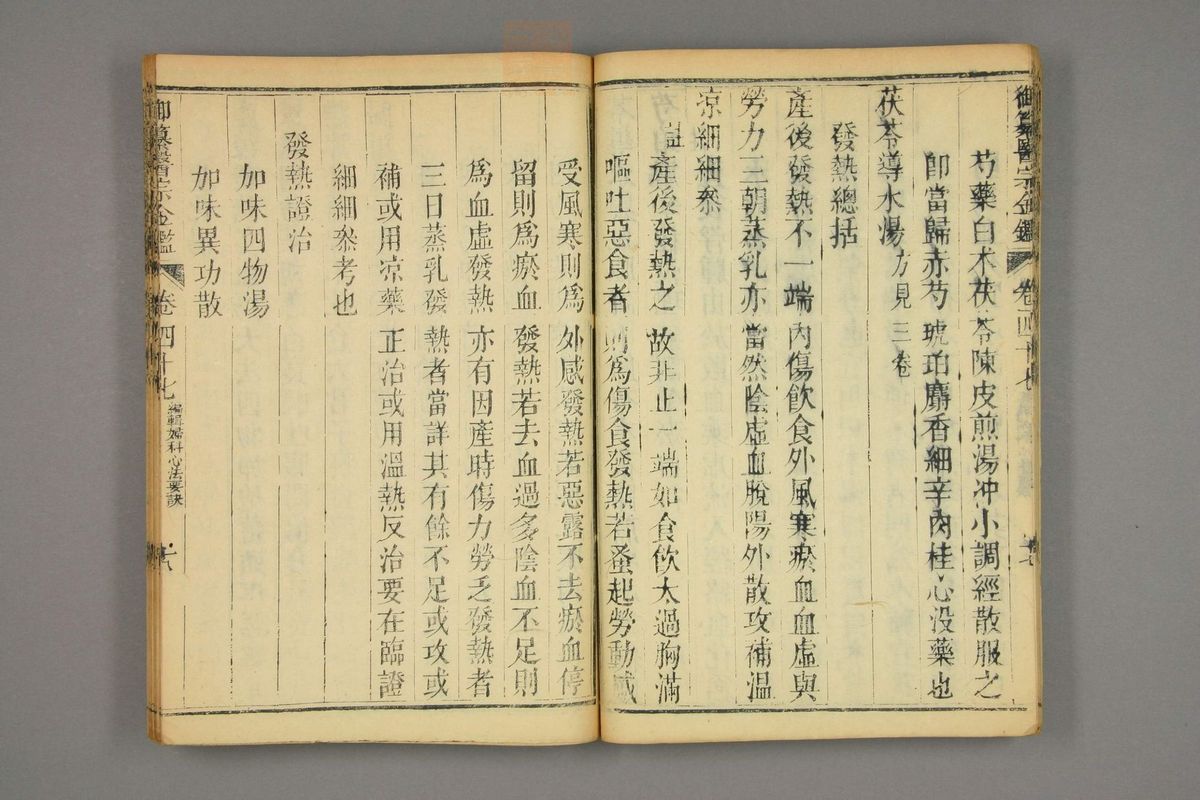 御纂醫宗金鑑 卷四十七
芍藥白朮茯苓陳皮煎湯冲小調經散服之
卽當歸赤芍琥珀麝香細辛肉桂心没藥也
茯苓導水湯方見三卷
發熱總括
產後發熱不一端内傷飲食外風寒瘀血血虛與
勞力三朝蒸乳亦當然陰虛血脫陽外散攻補溫
凉細細叅
註產後發熱之故非止一端如食飲太過胸滿
嘔吐惡食者則爲傷食發熱若蚤起勞動感
受風寒則爲外感發熱若惡露不去瘀血停
留則爲瘀血發熱若去血過多陰血不足則
爲血虛發熱亦有因產時傷力勞乏發熱者
三日蒸乳發熱者當詳其有餘不足或攻或
補或用凉藥正治或用溫熱反治要在臨證
細細叅考也
發熱證治
加味四物湯
加味異功散
御纂醫宗金鑑 卷四十七 編輯婦科心法要訣